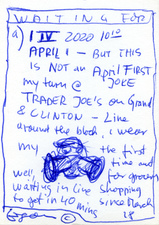 WAIT IN A FOR
a) 1 IV 2020 10¹⁰
APRIL 1 – BUT THIS
IS NOT AN April FIRST
my turn @ JOKE
TRADER JOE'S on Grand
& CLINTON – Line
around the block, I wear
my the first
time out
well, for grocery
waiting in line shopping
to get in 40 mins since March
18
©